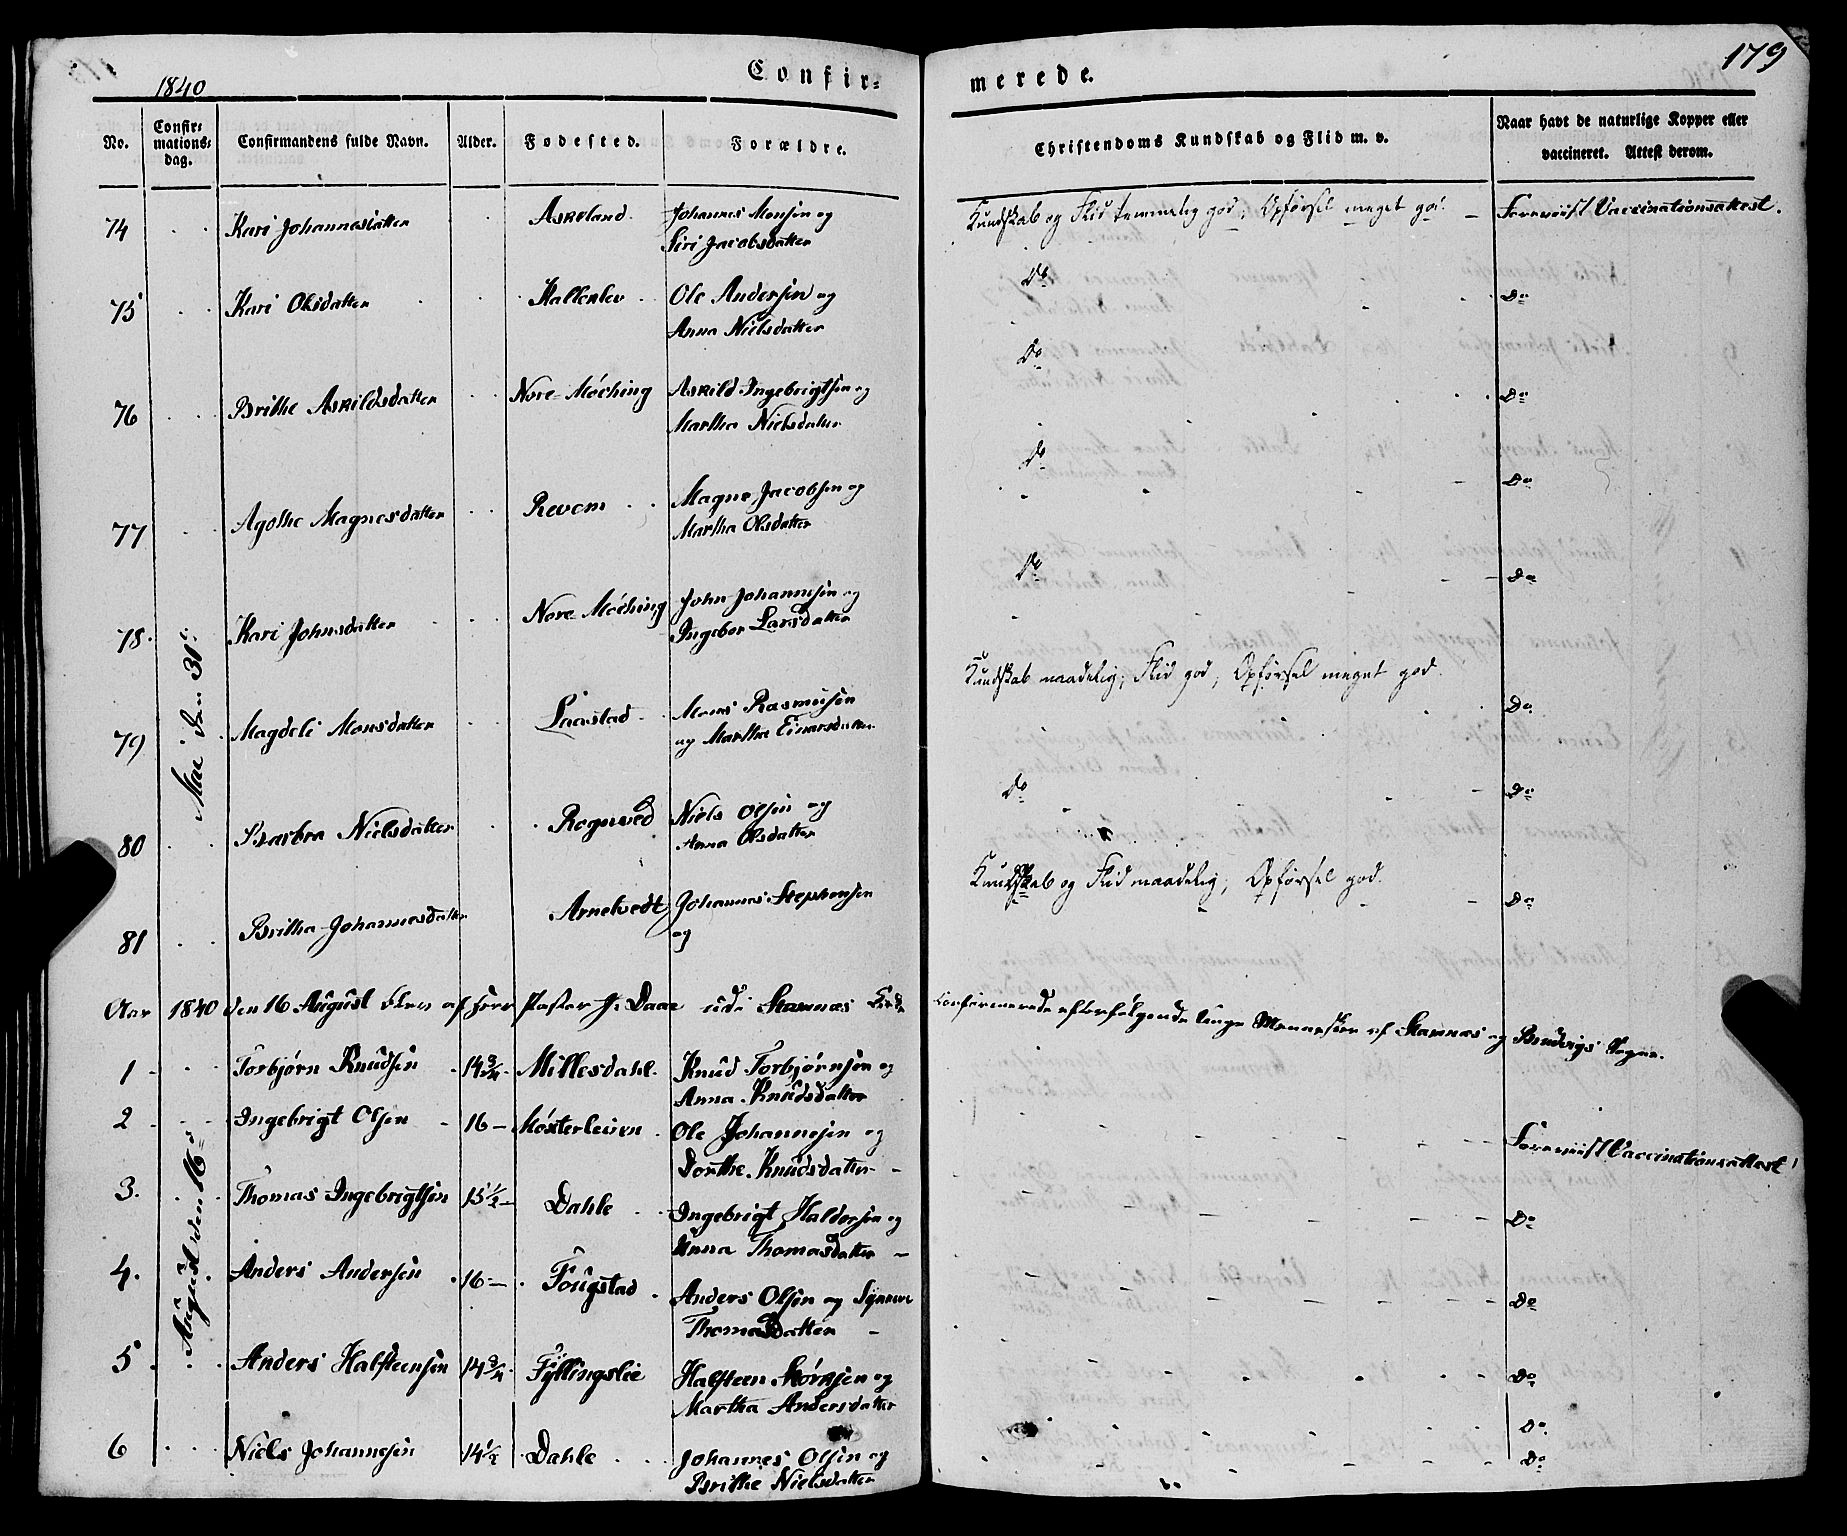 179
1840
Confir=
merede.
No.
Confir=
mations=
dag.
Confirmandens fulde Navn.
Alder.
Fødested.
Forældre.
Christendoms Kundskab og Flid m. v.
Naar havt de naturlige Kopper eller
vaccineret. Attest derom.
74 Kari Johannesdatter Askeland Johannes Monsen og
Siri Jacobsdatter
Kundskab og Flid temmelig god, Opførsel meget god. Foreviist Vaccinationsattest.
75 Kari Olsdatter Kallerlev Ole Andersen og
Anna Nielsdatter
Do Do
76 Brithe Askildsdatter Nore Møching Askild Ingebrigtsen og
Martha Nielsdatter
Do Do
77 Agothe Magnesdatter Revem Magne Jacobsen og
Martha Olsdatter
Do Do
78. Kari Johnsdatter Nore Møching John Johannesen og
Ingebor Larsdatter
Do Do
Mai den 31te
79 Magdeli Monsdatter Laastad Mons Rasmusen
og Marthe Einarsdatter
Kundskab maadelig, Flid god, Opførsel meget god. Do
80 Barbra Nielsdatter Rognved Niels Olsen og
Anna Olsdatter
Do Do
81 Britha Johannesdatter Arnetvedt Johannes Stephensen
og
Kundskab og Flid maadelig, Opførsel god. Do
Aar 1840 den 16 August blev af Herr Pastor J. Daae udi Stamnæs Kirke
Confirmerede efterfølgende unge Mennesker af Stamnæs og Bruvigs Sogne.
1 Torbjørn Knudsen 14 3/4 Millesdahl Knud Torbjørnsen og
Anna Knudsdatter
2 Ingebrigt Olsen 16 Møsterleiren Ole Johannesen og
Dorthe Knudsdatter
Foreviist Vaccinationsattest
August den 16de
3. Thomas Ingebrigtsen 15 1/2 Dahle Ingebrigt Haldorsen og
Anna Thomasdatter
Do
4. Anders Andersen 16 Fougstad Anders Olsen og Synneve
Thomasdatter
Do
5 Anders Halsteensen 14 3/4 Fyllingslie Halsteen Størksen og
Martha Andersdatter
Do
6 Niels Johannesen 14 1/2 Dahle Johannes Olsen og
Brithe Nielsdatter
Do
Do